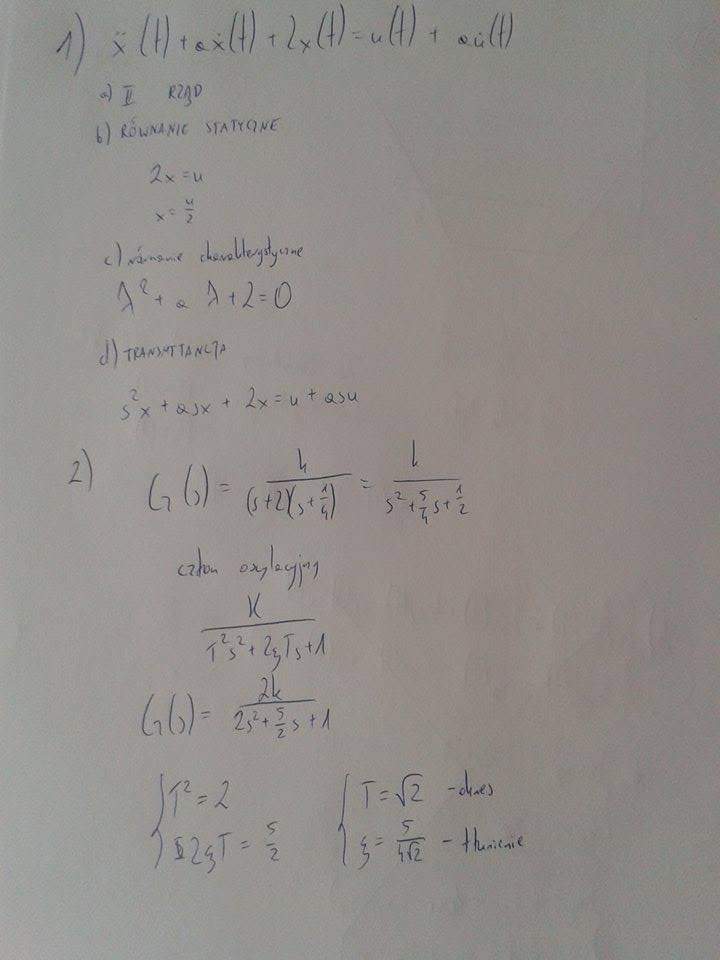 1) ẍ(t) + aẋ(t) + 2x(t) = u(t) + au̇(t)
a) II RZĄD
b) RÓWNANIE STATYCZNE
2x = u
x = u/2
c) równanie charakterystyczne
λ² + a λ + 2 = 0
d) TRANSMITANCJA
s²x + asx + 2x = u + asu
2) G(s) = k/((s+2)(s+1/4)) = k/(s²+5/4s+1/2)
człon oscylacyjny
K/(T²s²+2ξTs+1)
G(s) = 2k/(2s²+5/2s+1)
{ T² = 2 { T = √2 - okres
2ξT = 5/2 ξ = 5/(4√2) - tłumienie